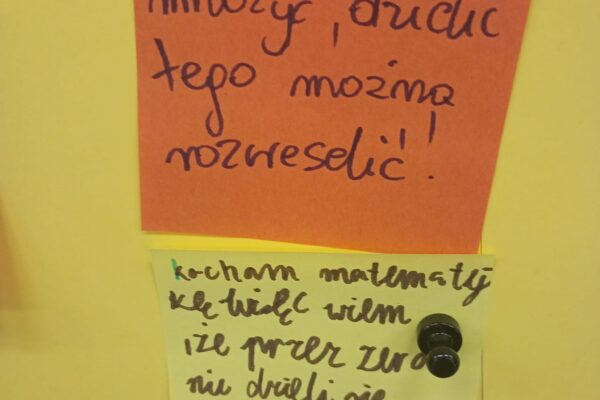 mnożyć, dzielić
tego można
rozweselić!
kocham matematy
kę więc wiem
iże przez zero
nie dzieli się